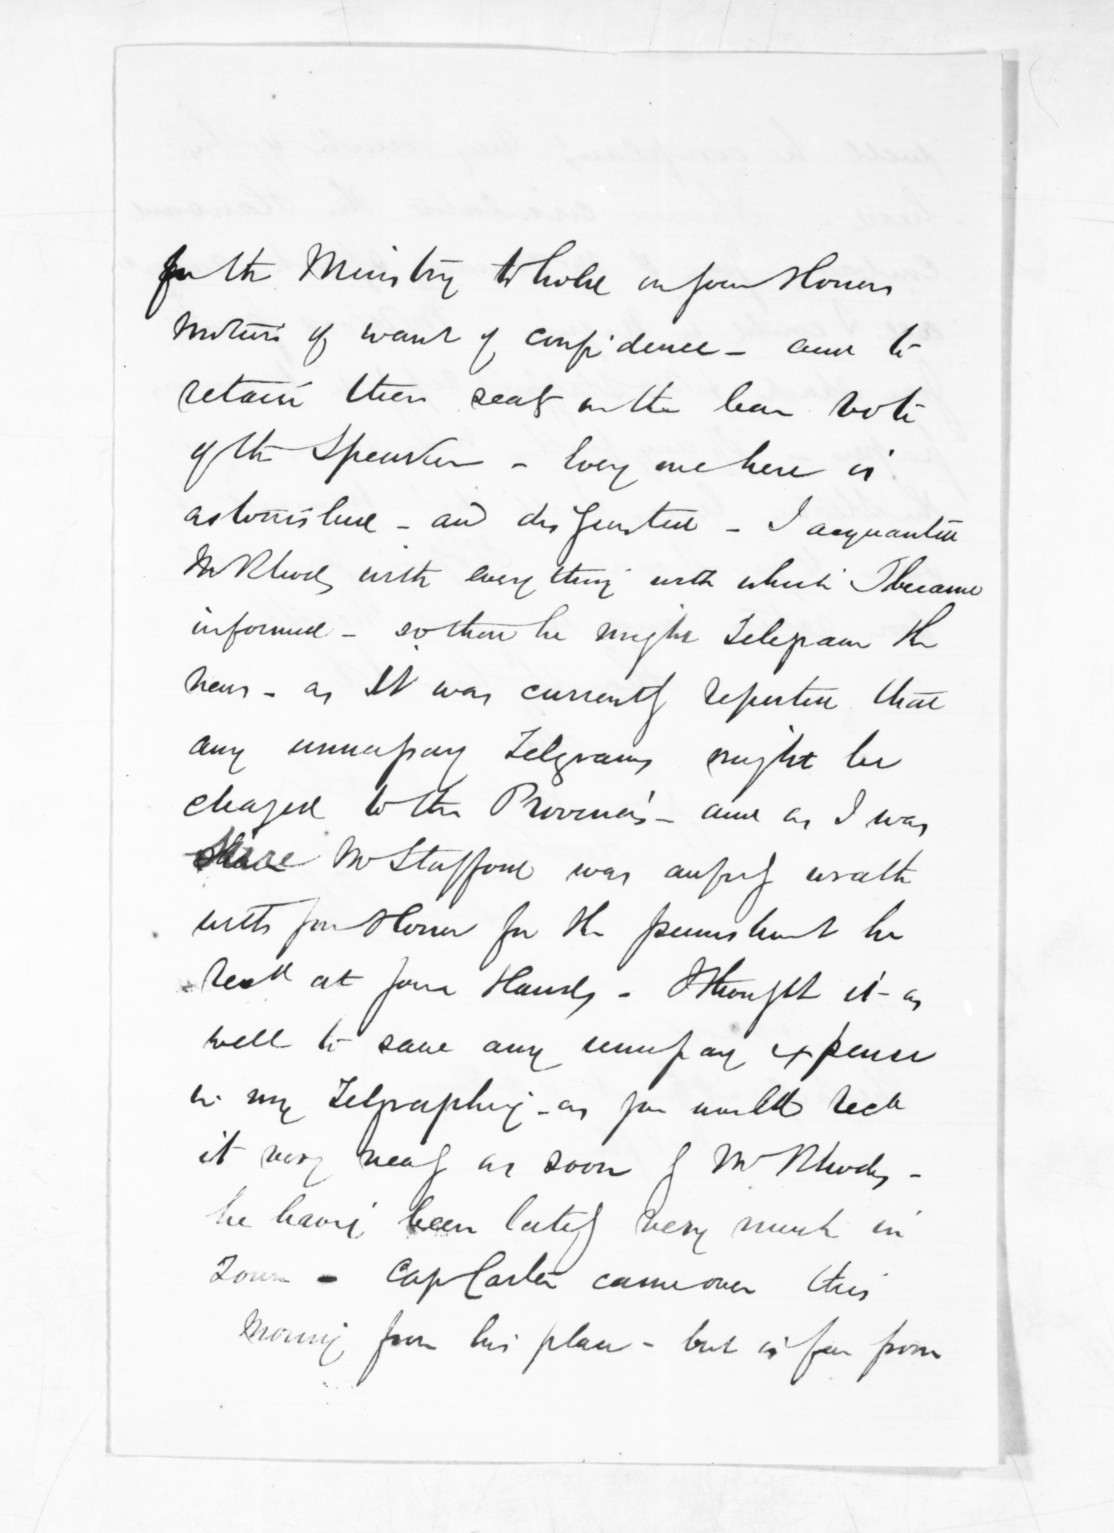 for the Ministry to hold on your Honors
motion of want of confidence - and to
retain their seats on the bare vote
of the Speaker - Every one here is
astonished - and disgusted - I acquainted
Mr Rhodes with everything with which I became
informed - so that he might Telegram the
news - as it was currently reported that
any unnecessary Telegrams might be
charged to the Province - and as I was
Mr Stafford was awfully wrath
with your Honor for the punishment he
recd at your Hands - I thought it as
well to save any unnecessary expense
in my Telegraphing - as you would recd
it very nearly as soon of Mr Rhodes -
he having been lately very much in
Town - Cap Carter came over this
Morning from his place - but is far from